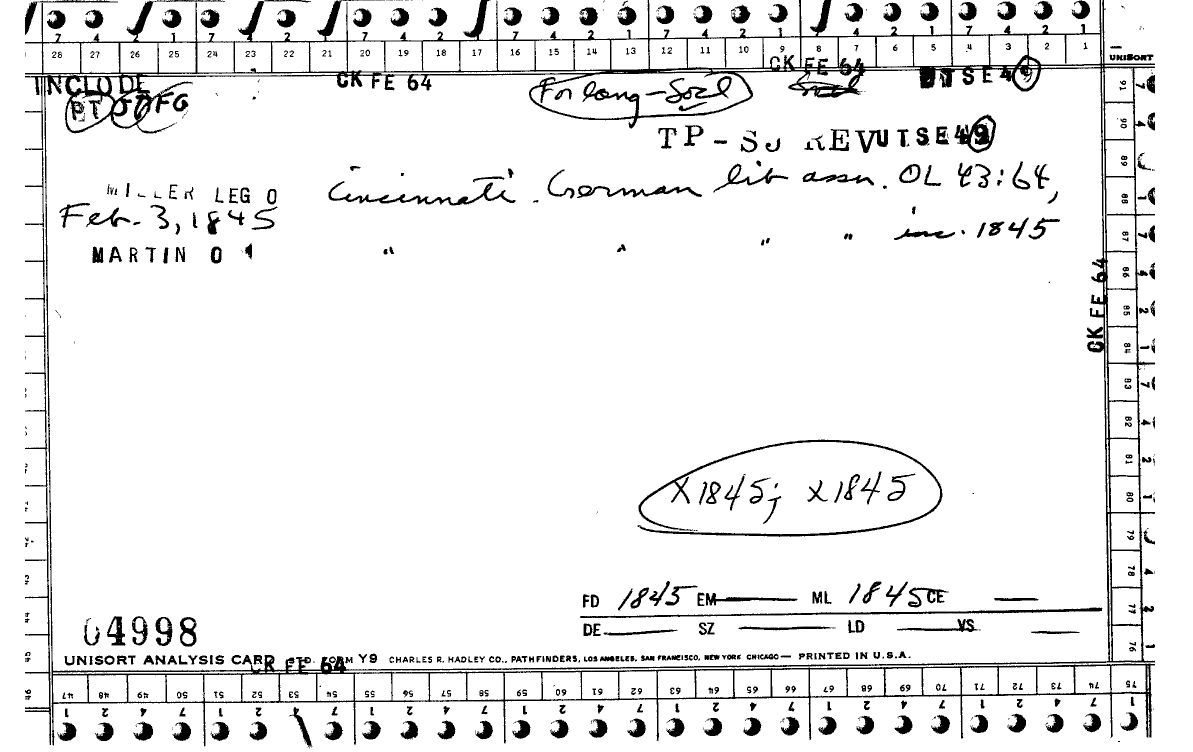 7 4 2 1 7 4 2 1 7 4 2 1 7 4 2 1 7 4 2 1 7 4 2 1
28 27 26 25 24 23 22 21 20 19 18 17 16 15 14 13 12 11 10 9 8 7 6 5 4 3 2 1
UNISORT
INCLUDE CK FE 64 For lang-Socl CK FE 64 UTSE49
PT FG
TP-SJ REV UTSE49
MILLER LEG 0 Cincinnati. German lib assn. OL 43:64,
Feb. 3, 1845 " " " " inc. 1845
MARTIN 0
CK FE 64
X1845; X1845
FD 1845 EM ML 1845 CE
DE SZ LD VS
04998
UNISORT ANALYSIS CARD FORM Y9 CHARLES R. HADLEY CO., PATHFINDERS, LOS ANGELES, SAN FRANCISCO, NEW YORK CHICAGO — PRINTED IN U.S.A.
CK FE 64
91 90 89 88 87 86 85 84 83 82 81 80 79 78 77 76
47 48 49 50 51 52 53 54 55 56 57 58 59 60 61 62 63 64 65 66 67 68 69 70 71 72 73 74 75